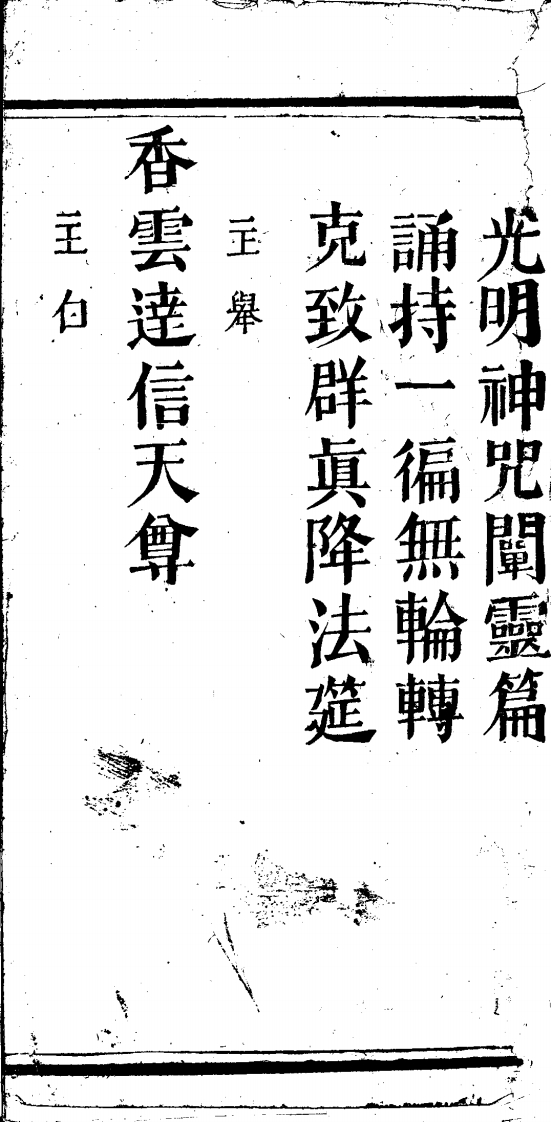 光明神咒闡靈篇
誦持一徧無輪轉
克致群眞降法筵
主舉
香雲達信天尊
主白